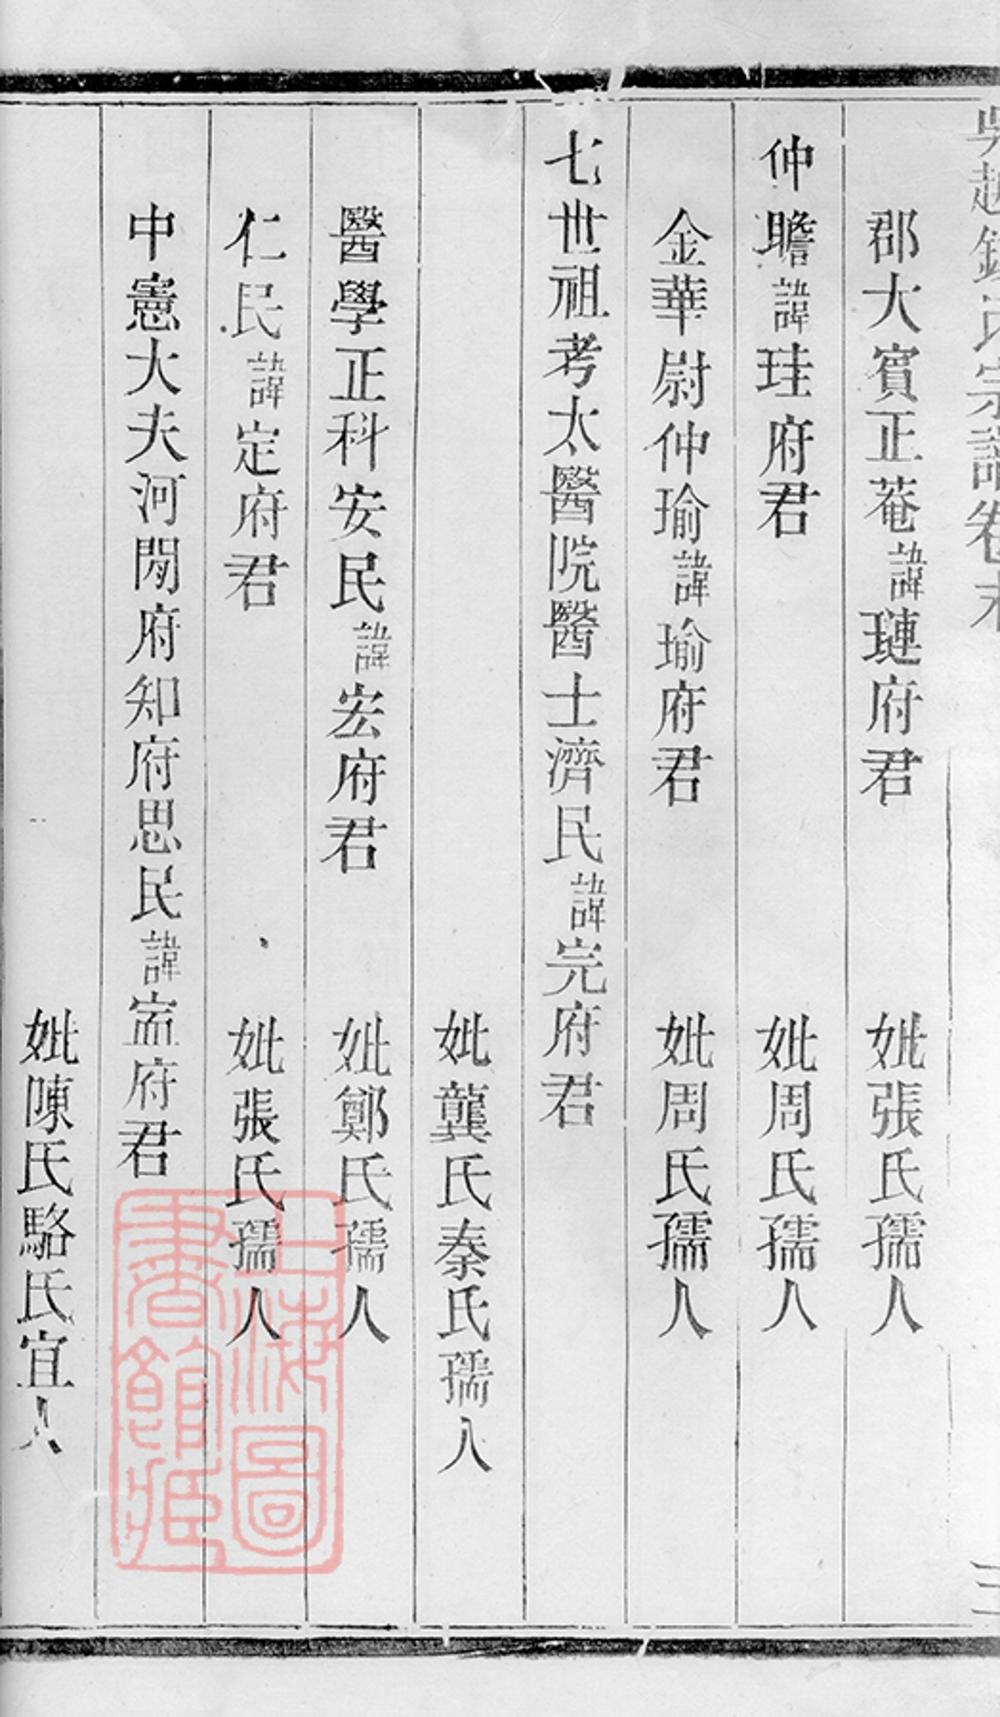 吳越錢氏宗譜卷末
三
郡大賓正菴諱璉府君 妣張氏孺人
仲瞻諱珪府君 妣周氏孺人
金華尉仲瑜諱瑜府君 妣周氏孺人
七世祖考太醫院醫士濟民諱完府君
妣龔氏秦氏孺人
醫學正科安民諱宏府君 妣鄭氏孺人
仁民諱定府君 妣張氏孺人
中憲大夫河閒府知府思民諱寍府君
妣陳氏駱氏宜人
上海圖
書館藏